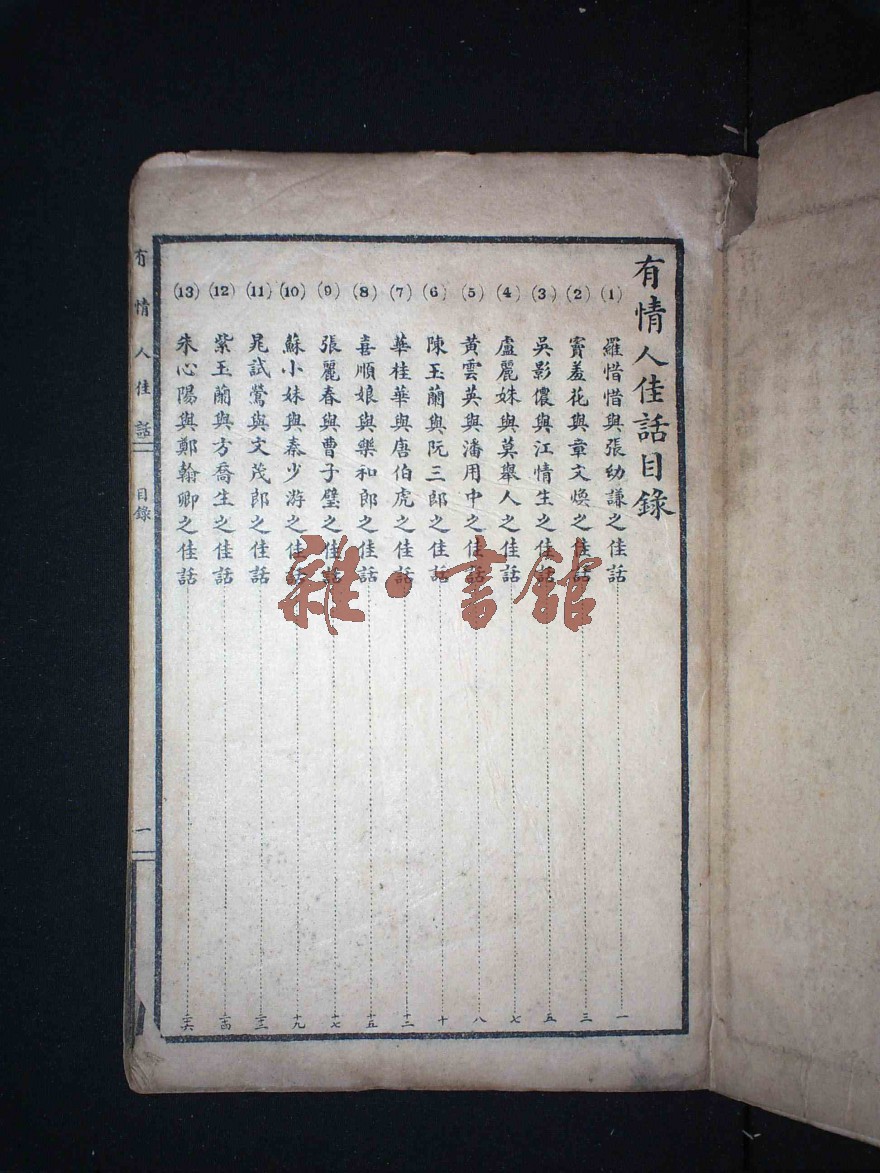 有情人佳話目錄
(1) 羅惜惜與張幼謙之佳話 一
(2) 竇羞花與章文煥之佳話 三
(3) 吳影儂與江情生之佳話 五
(4) 盧麗姝與莫舉人之佳話 七
(5) 黃雲英與潘用中之佳話 八
(6) 陳玉蘭與阮三郎之佳話 十
(7) 華桂華與唐伯虎之佳話 十二
(8) 喜順娘與樂和郎之佳話 十五
(9) 張麗春與曹子璧之佳話 十七
(10) 蘇小妹與秦少游之佳話 十九
(11) 晁試鶯與文茂郎之佳話
(12) 紫玉蘭與方喬生之佳話 二四
(13) 朱心陽與鄭翰卿之佳話 二六
有情人佳話 目錄 一
雜·書館